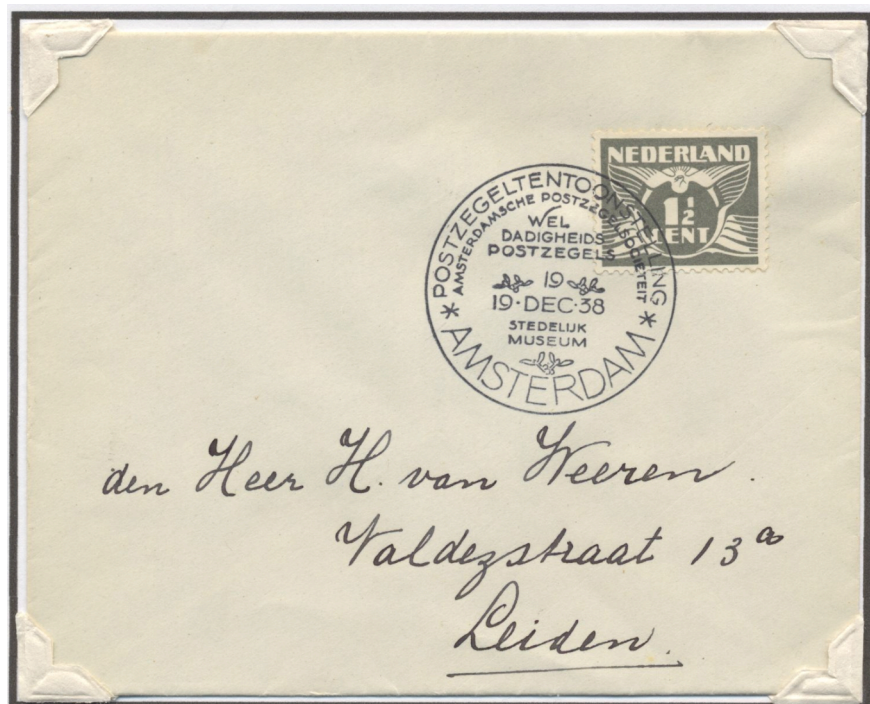 NEDERLAND
1 1/2
CENT
POSTZEGELTENTOONSTELLING
AMSTERDAMSCHE POSTZEGELSOCIETEIT
WEL
DADIGHEIDS
POSTZEGELS
19
19·DEC·38
STEDELIJK
MUSEUM
* AMSTERDAM *
den Heer H. van Weeren.
Valdezstraat 13a
Leiden.